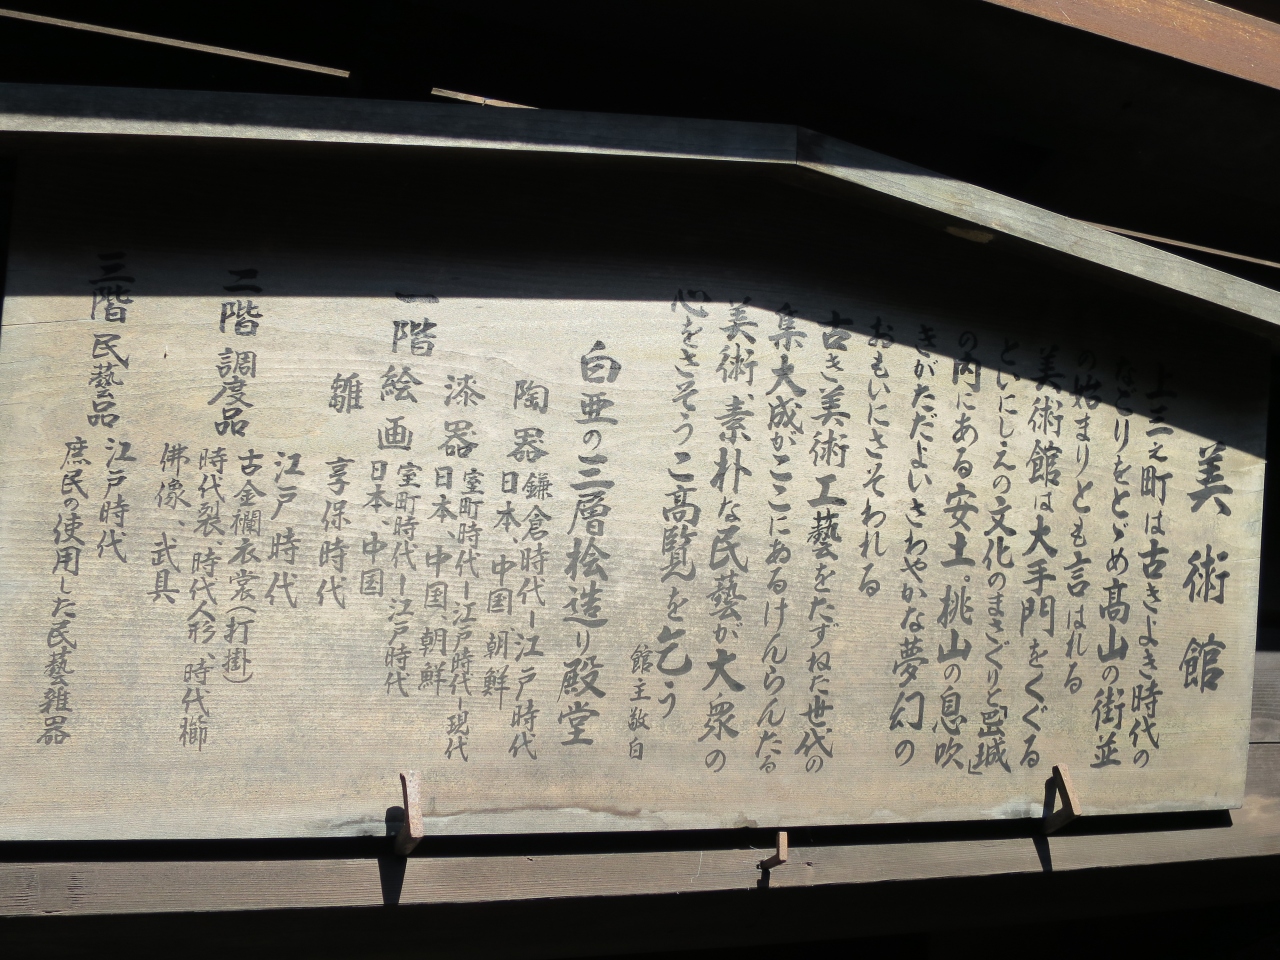 美術館
上三之町は古きよき時代の
なごりをとゞめ高山の街並
の始まりとも言はれる
美術館は大手門をくぐる
といにしえの文化のまさぐりと「
の内にある安土。桃山の息吹
きがただよいさわやかな夢幻の
おもいにさそわれる
古き美術工藝をたずねた世代の
集大成がここにあるけんらんたる
美術、素朴な民藝が大衆の
心をさそうご高覧を乞う
館主敬白
白亜の三層桧造り殿堂
陶器 鎌倉時代ー江戸時代
日本、中国、朝鮮
漆器 室町時代ー江戸時代ー現代
日本、中国、朝鮮
一階 絵画 室町時代ー江戸時代
日本、中国
雛 享保時代
二階 調度品 江戸時代
古金襴衣裳(打掛)
時代裂、時代人形、時代櫛
佛像、武具
三階 民藝品 江戸時代
庶民の使用した民藝雑器